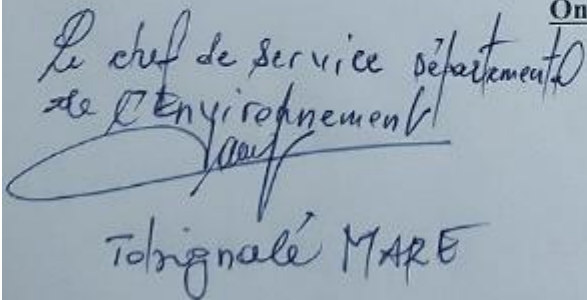 On
Le chef de service départemental
de l'Environnement
MARE